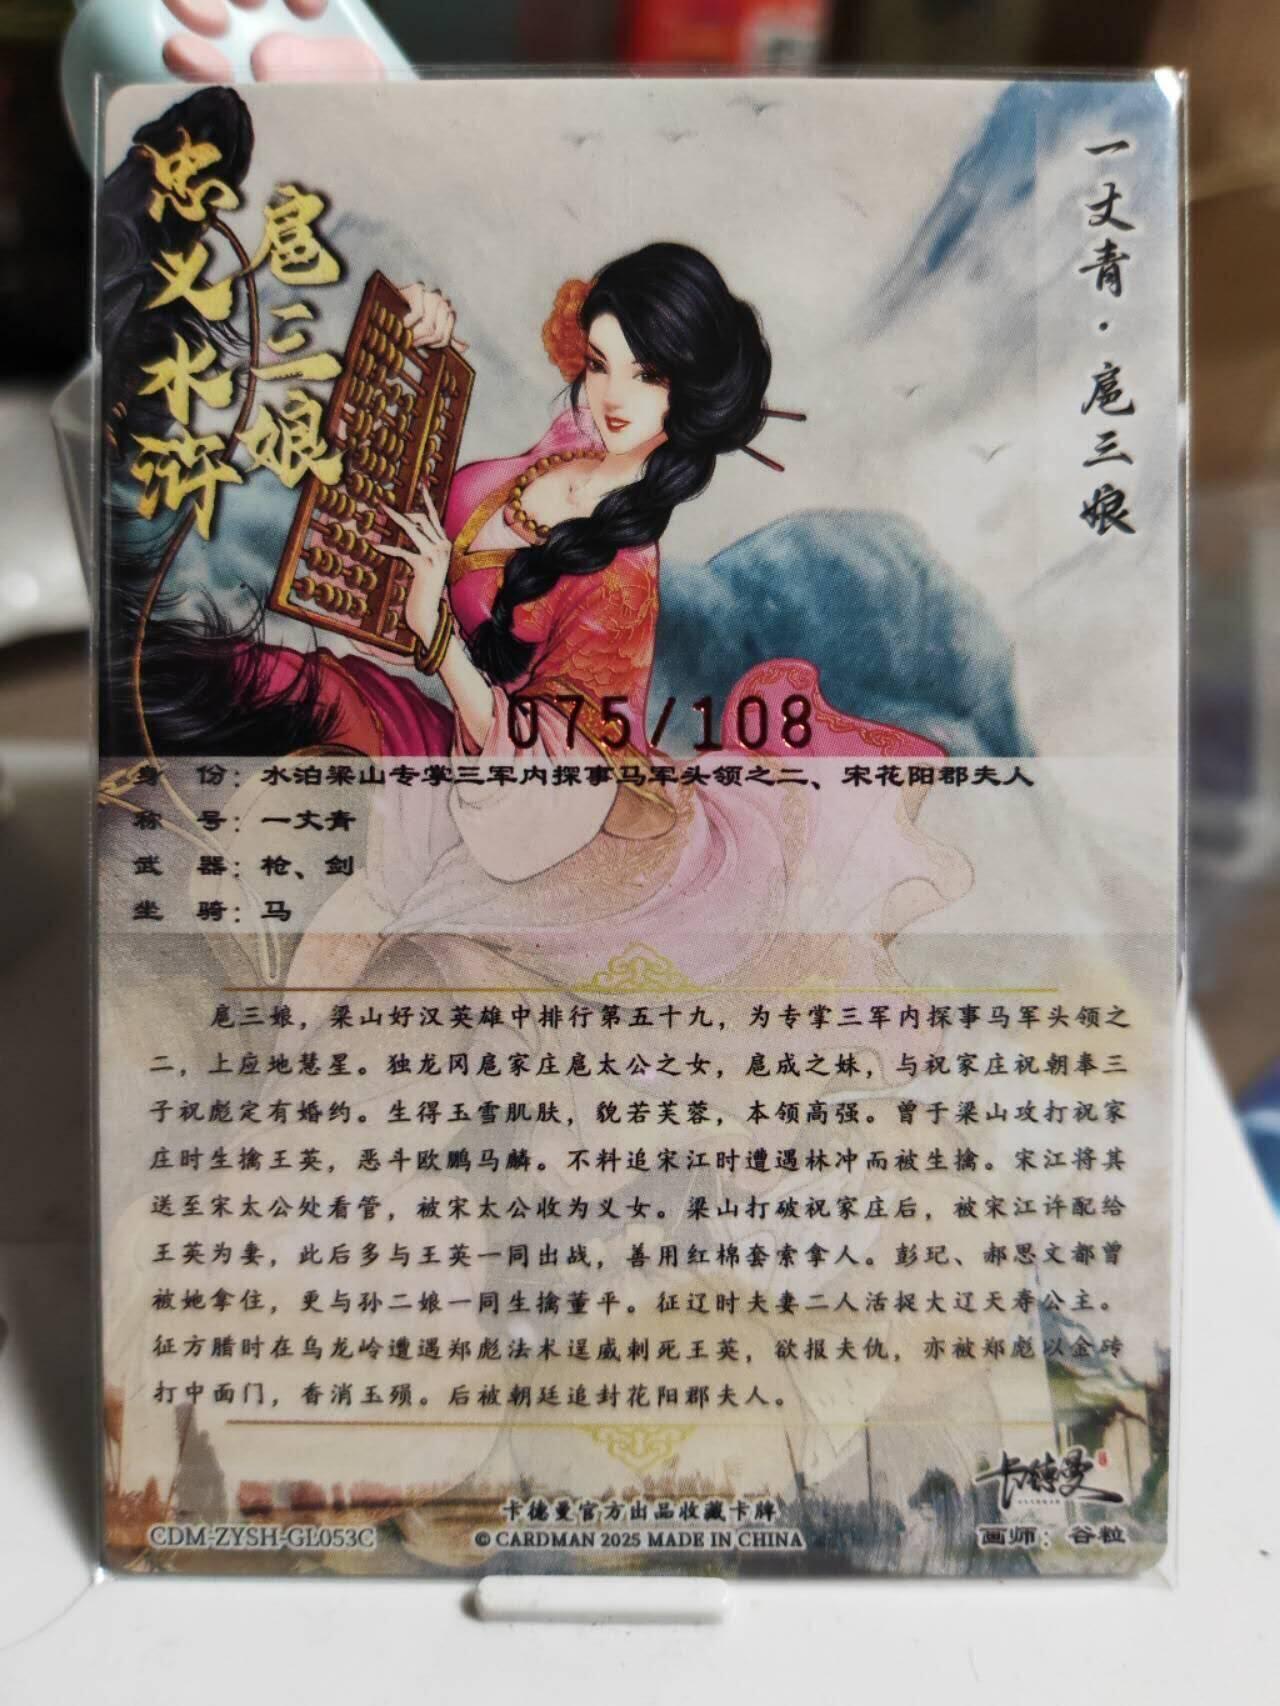 忠义水浒
扈三娘
一丈青·扈三娘
075/108
身 份：水泊梁山专掌三军内探事马军头领之二、宋花阳郡夫人
称 号：一丈青
武 器：枪、剑
坐 骑：马
扈三娘，梁山好汉英雄中排行第五十九，为专掌三军内探事马军头领之
二，上应地慧星。独龙冈扈家庄扈太公之女，扈成之妹，与祝家庄祝朝奉三
子祝彪定有婚约。生得玉雪肌肤，貌若芙蓉，本领高强。曾于梁山攻打祝家
庄时生擒王英，恶斗欧鹏马麟。不料追宋江时遭遇林冲而被生擒。宋江将其
送至宋太公处看管，被宋太公收为义女。梁山打破祝家庄后，被宋江许配给
王英为妻，此后多与王英一同出战，善用红棉套索拿人。彭玘、郝思文都曾
被她拿住，更与孙二娘一同生擒董平。征辽时夫妻二人活捉大辽天寿公主。
征方腊时在乌龙岭遭遇郑彪法术逞威刺死王英，欲报夫仇，亦被郑彪以金砖
打中面门，香消玉殒。后被朝廷追封花阳郡夫人。
卡德曼
卡德曼官方出品收藏卡牌
CDM-ZYSH-GL053C
© CARDMAN 2025 MADE IN CHINA
画师：谷粒